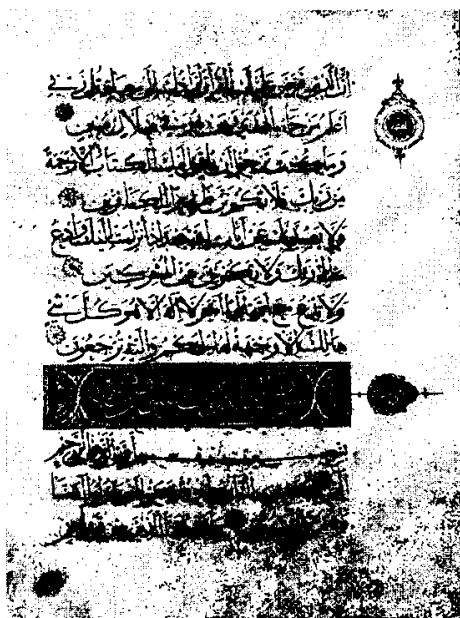 ان الذي فرض عليك القرآن لرادك الى معاد قل ربي
اعلم من جاء بالهدى ومن هو في ضلال مبين
وما كنت ترجو ان يلقى اليك الكتاب الا رحمة
من ربك فلا تكونن ظهيرا للكافرين
ولا يصدنك عن آيات الله بعد اذ انزلت اليك وادع
الى ربك ولا تكونن من المشركين
ولا تدع مع الله الها آخر لا اله الا هو كل شي
هالك الا وجهه له الحكم واليه ترجعون
بسم الله الرحمن الرحيم